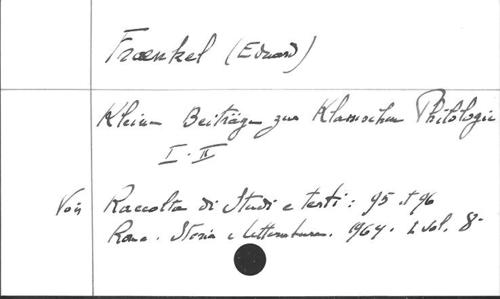 Fraenkel (Eduard)
Kleine Beiträge zur Klassischen Philologie
I - II
Voir Raccolta di Studi e testi : 95 et 96
Roma. Storia e letteratura. 1964. 2 vol. 8°